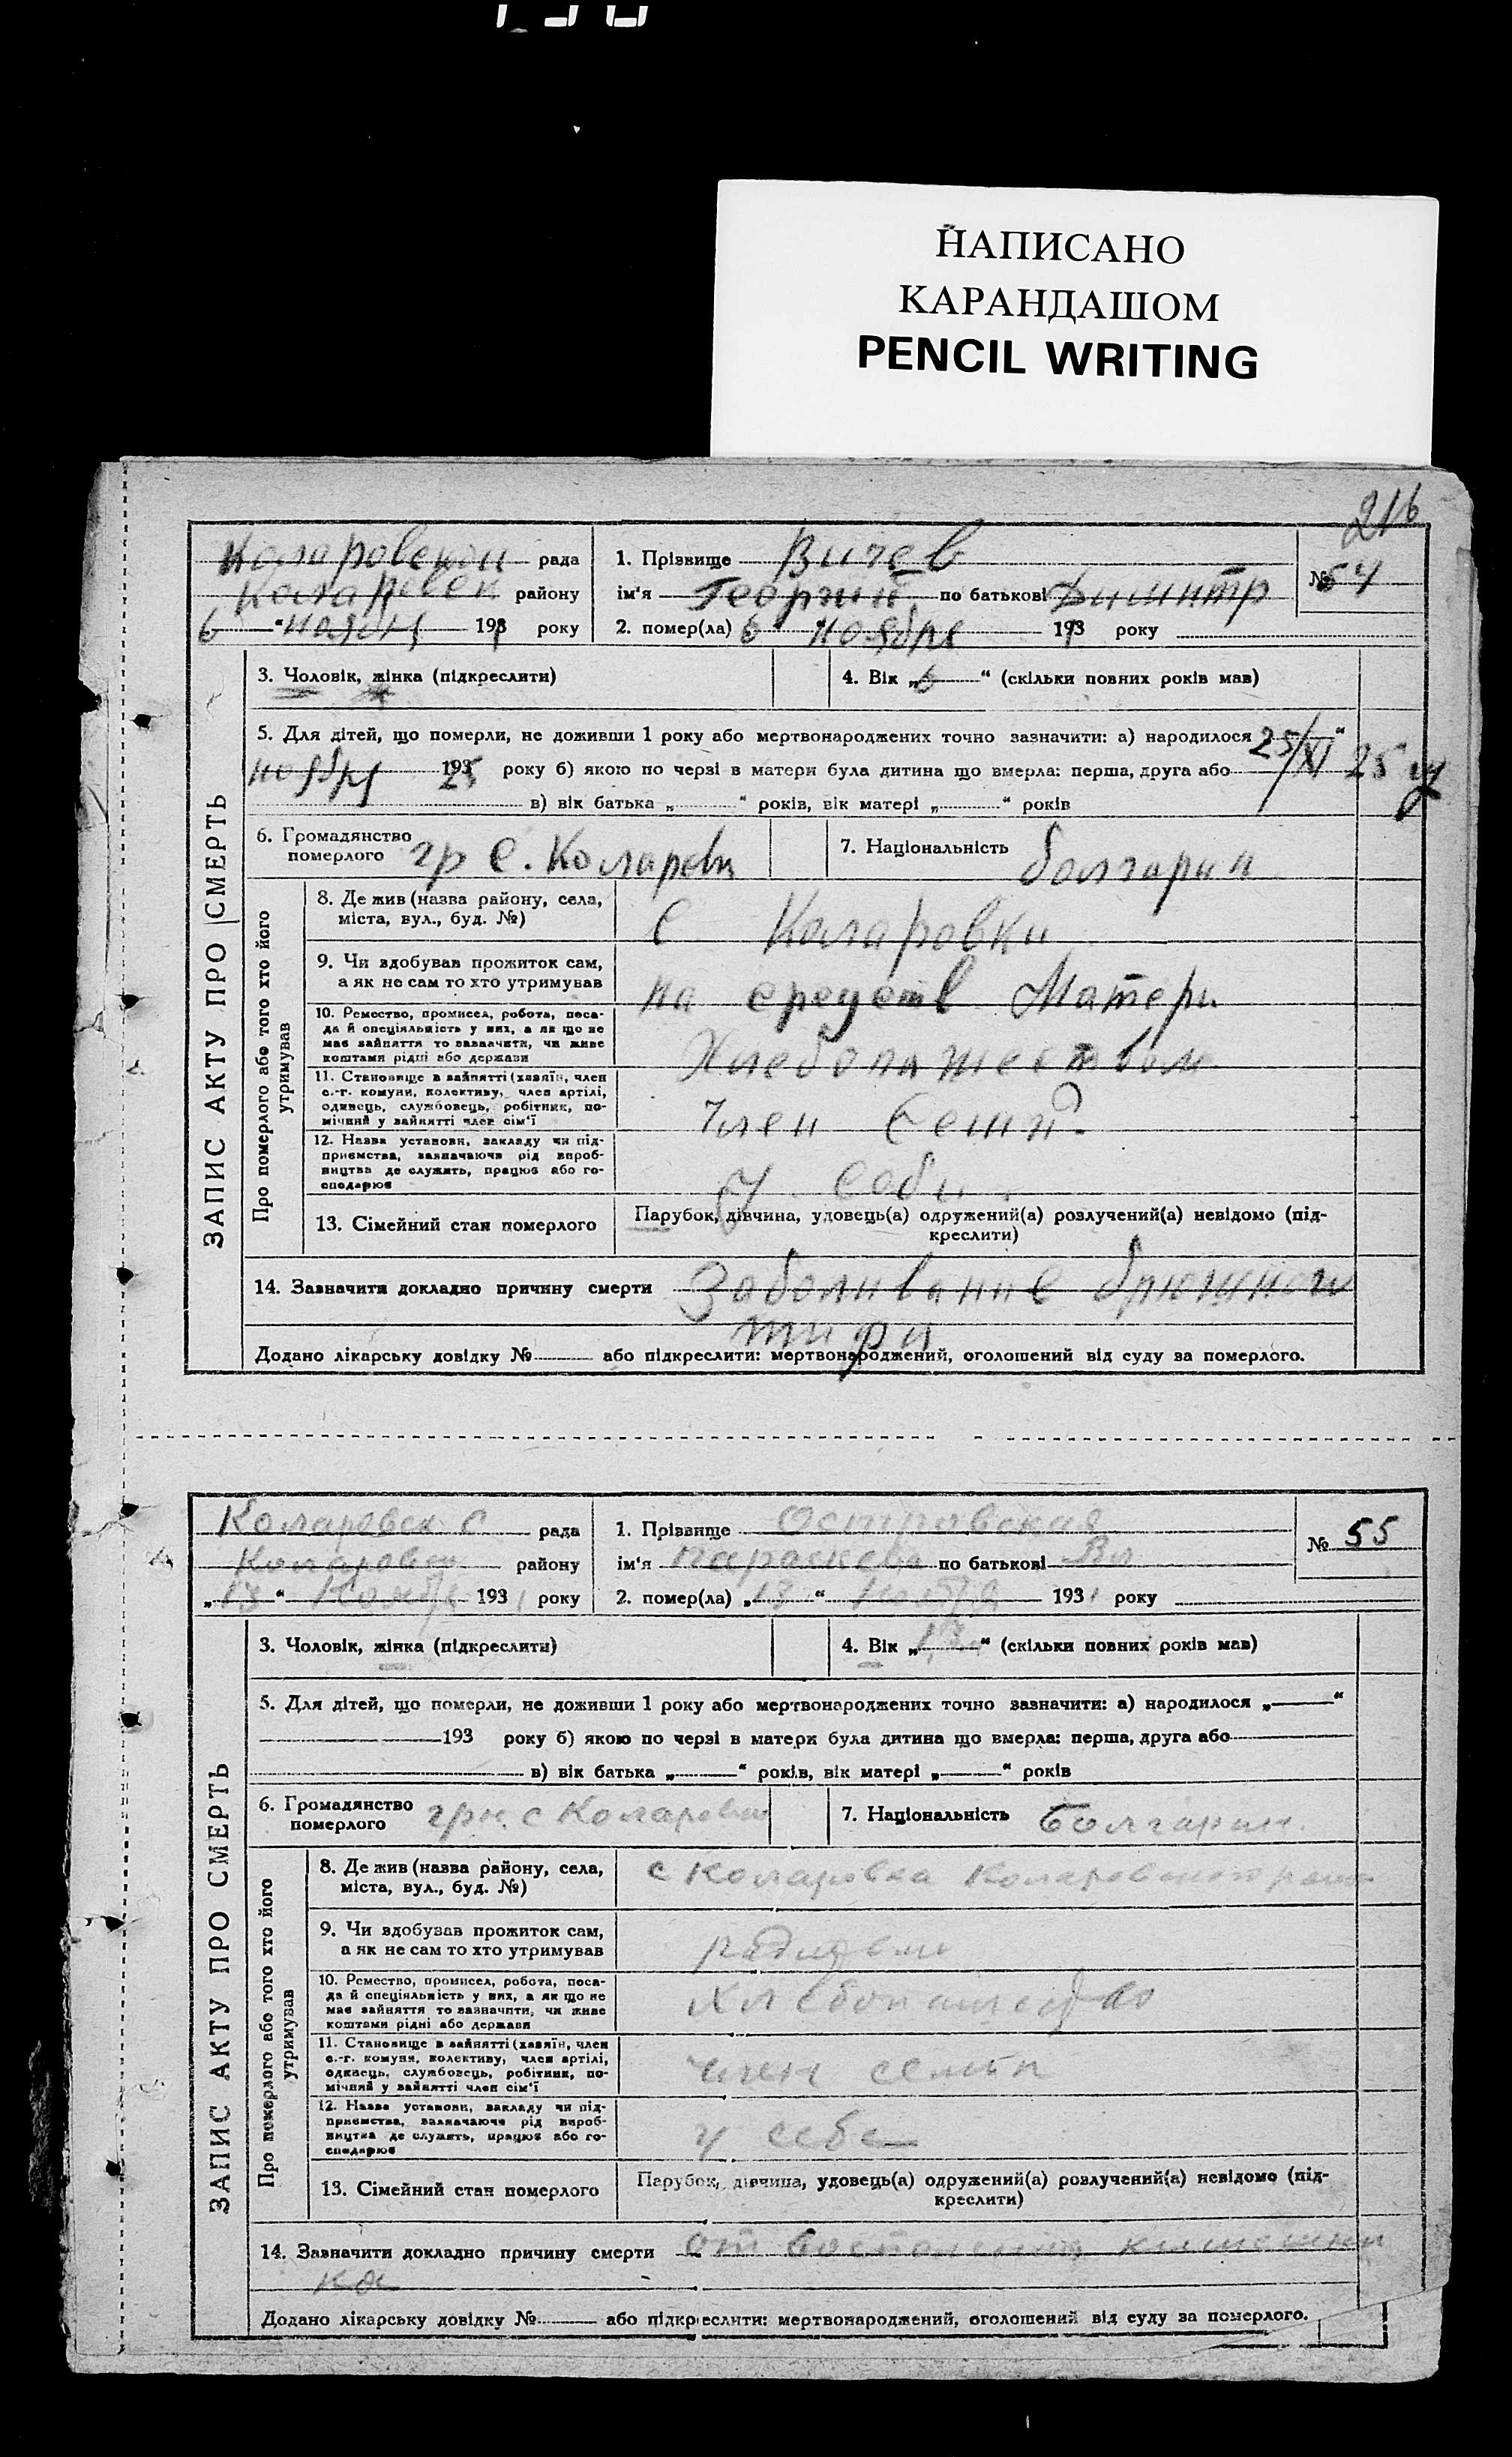 НАПИСАНО
КАРАНДАШОМ
PENCIL WRITING
216
Коларовской рада
Коларовск району
6 " ноября 1931 року
1. Прізвище Вичев
ім'я Георгий по батькові Димитр
2. помер(ла) 6 " ноября 1931 року
№ 54
ЗАПИС АКТУ ПРО СМЕРТЬ
3. Чоловік, жінка (підкреслити)
4. Вік „6“ (скільки повних років мав)
5. Для дітей, що померли, не доживши 1 року або мертвонароджених точно зазначити: а) народилося 25/XI “ 25
ноября 1925 року б) якою по черзі в матери була дитина що вмерла: перша, друга або
в) вік батька „ “ років, вік матері „ “ років
6. Громадянство померлого гр с. Коларовк
7. Національність болгарин
Про померлого або того хто його утримував
8. Де жив (назва району, села,
міста, вул., буд. №)
с Коларовки
9. Чи здобував прожиток сам,
а як не сам то хто утримував
на средств Матери
10. Ремество, промисел, робота, поса-
да й спеціяльність у них, а як що не
має зайняття то зазначити, чи живе
коштами рідні або держави
Хлебопашеством
11. Становище в зайнятті (хазяїн, член
с.-г. комуни, колективу, член артілі,
одинець, службовець, робітник, по-
мічний у зайнятті член сім'ї
Член семьи
12. Назва установи, закладу чи під-
приємства, зазначаючи рід вироб-
ництва де служить, працює або го-
сподарює
У себи
13. Сімейний стан померлого
Парубок, дівчина, удовець(а) одружений(а) розлучений(а) невідомо (під-
креслити)
14. Зазначити докладно причину смерти Заболивание брюшной
тифи
Додано лікарську довідку № або підкреслити: мертвонароджений, оголошений від суду за померлого.
Коларовск с рада
Коларовск району
„13“ Ноября 1931 року
1. Прізвище Островская
ім'я Параскева по батькові Вл
2. помер(ла) „13“ Ноября 1931 року
№ 55
ЗАПИС АКТУ ПРО СМЕРТЬ
3. Чоловік, жінка (підкреслити)
4. Вік „ “ (скільки повних років мав)
5. Для дітей, що померли, не доживши 1 року або мертвонароджених точно зазначити: а) народилося „ “
193 року б) якою по черзі в матери була дитина що вмерла: перша, друга або
в) вік батька „ “ років, вік матері „ “ років
6. Громадянство померлого грн. с Коларовки
7. Національність Болгарин.
Про померлого або того хто його утримував
8. Де жив (назва району, села,
міста, вул., буд. №)
с Коларовка Коларовского района
9. Чи здобував прожиток сам,
а як не сам то хто утримував
10. Ремество, промисел, робота, поса-
да й спеціяльність у них, а як що не
має зайняття то зазначити, чи живе
коштами рідні або держави
Хлебопашество
11. Становище в зайнятті (хазяїн, член
с.-г. комуни, колективу, член артілі,
одинець, службовець, робітник, по-
мічний у зайнятті член сім'ї
член семьи
12. Назва установи, закладу чи під-
приємства, зазначаючи рід вироб-
ництва де служить, працює або го-
сподарює
у себе
13. Сімейний стан померлого
Парубок, дівчина, удовець(а) одружений(а) розлучений(а) невідомо (під-
креслити)
14. Зазначити докладно причину смерти от воспаления кишечни
ка
Додано лікарську довідку № або підкреслити: мертвонароджений, оголошений від суду за померлого.